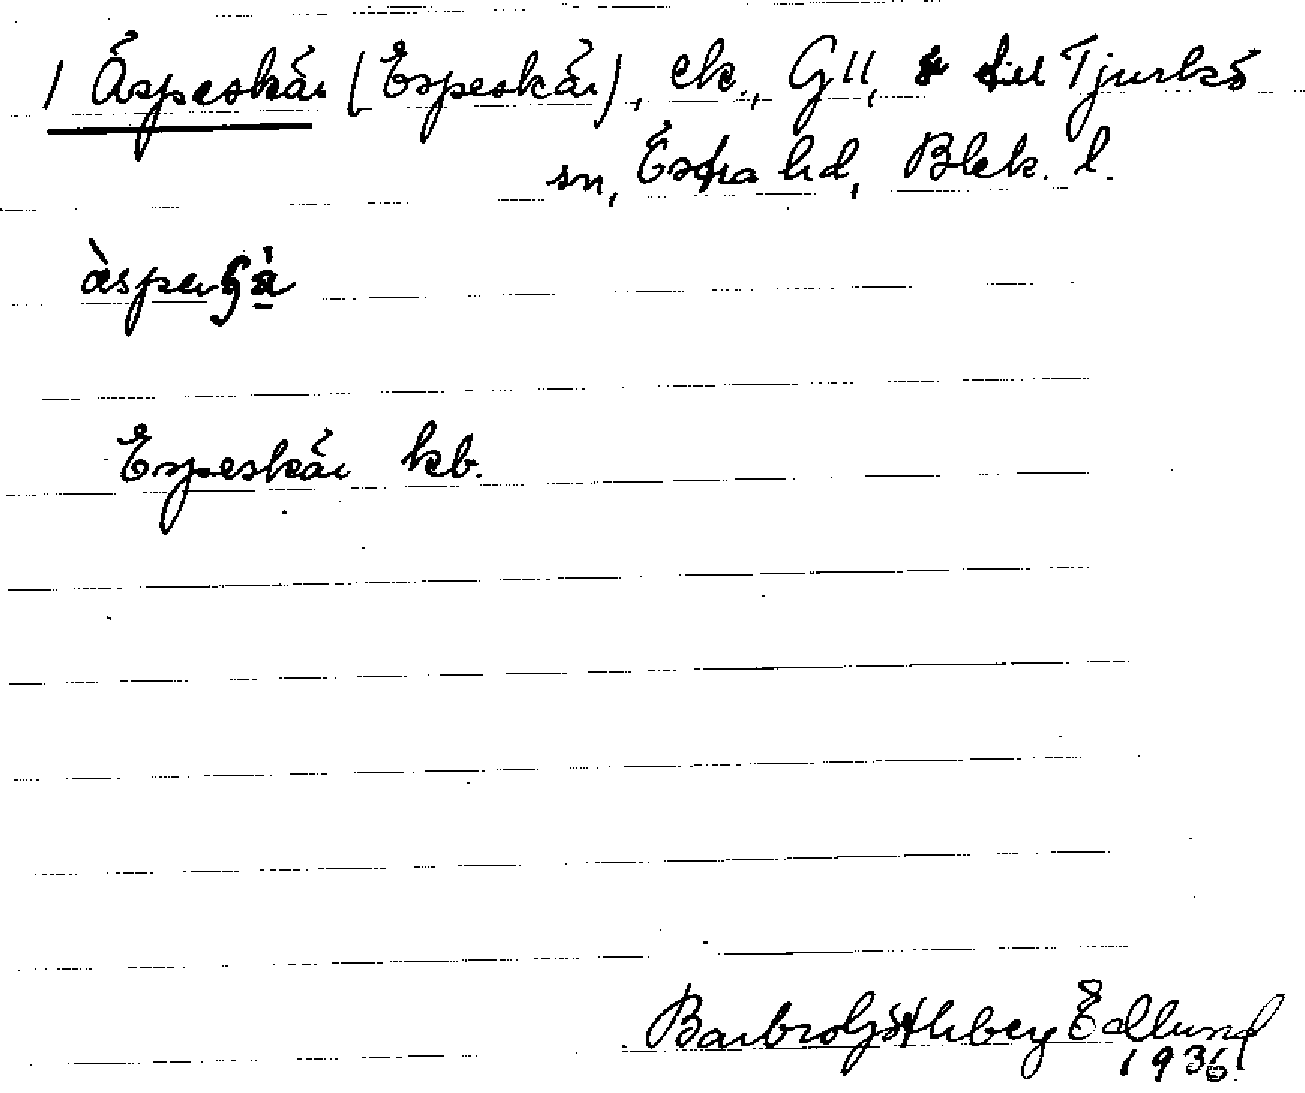 1 Äspeskär (Espeskär), ek., G11, till Tjurkö
sn, Östra hd, Blek. l.
Espeskär kb.
Barbro Götlberg Edlund
1936.